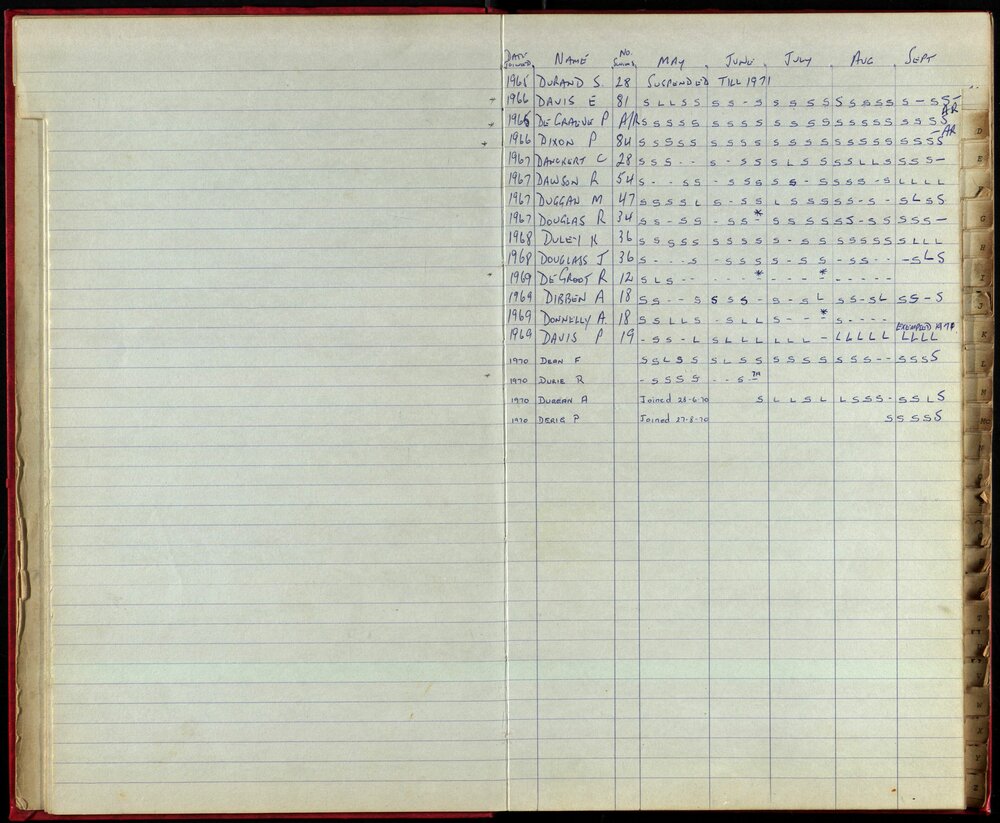 DATE JOINED NAME NO. SWIMS MAY JUNE JULY AUG SEPT
1965 DURAND S. 28 SUSPENDED TILL 1971
1966 DAVIS E 81 S L L S S S S - S S S S S S S S S S S - S S -
AR
1965 DE GRAEVE P A/R S S S S S S S S S S S S S S S S S S S S S S S
- AR
1966 DIXON P 84 S S S S S S S S S S S S S S S S S S S S S S S
1967 DANCKERT C 28 S S S - - S - S S S L S S S S L L S S S S -
1967 DAWSON R 54 S - - S S - S S S S S - S S S S - S L L L L
1967 DUGGAN M 47 S S S S L S - S S L S S S S S S - S - S L S S
1967 DOUGLAS R 34 S S - S S S S - * - S S S S S S - S S S S S -
1968 DULEY K 36 S S S S S S S S S S - S S S S S S S S L L L
1968 DOUGLASS J 36 S - - - S - S S S S - S S - S S - - - S L S
1969 DE GROOT R 12 S L S - - - - - * - - - - * - - - - -
1969 DIBBEN A 18 S S - - S S S S - S - S L S S - S L S S - S
1969 DONNELLY A. 18 S S L L S - S L L S - - - * S - - - -
EXEMPTED 1971
1969 DAVIS P 19 - S S - L S L L L L L L - L L L L L L L L L
1970 DEAN F S S L S S S L S S S S S S S S S - - S S S S
1970 DURIE R - S S S S - - S -
1970 DUREAN A Joined 28-6-70 S L L S L L S S S - S S L S
1970 DERIG P Joined 27-8-70 S S S S S
D
E
F
G
H
I
J
K
L
M
MC
N
T
W
X
Y
Z